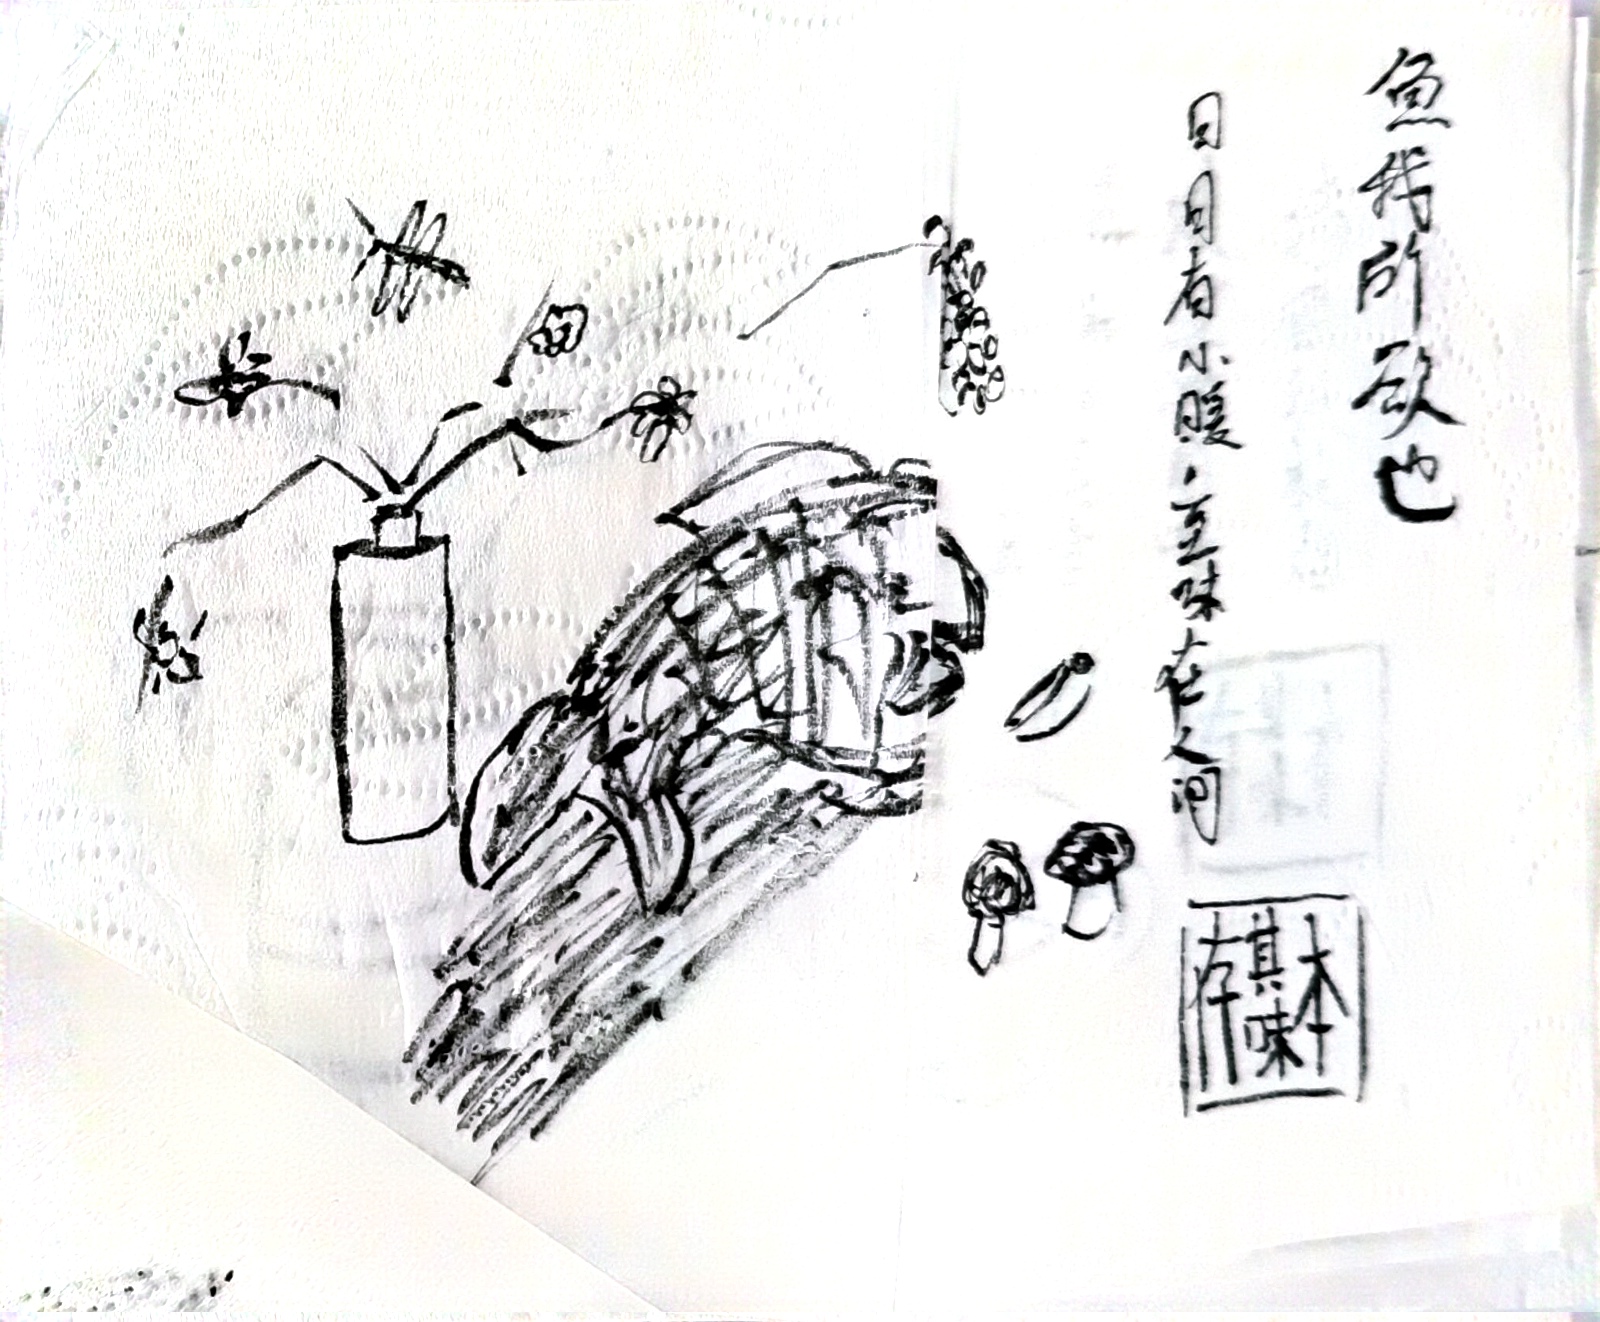 魚我所欲也
日日有小暖·至味在人间
本
其味
存